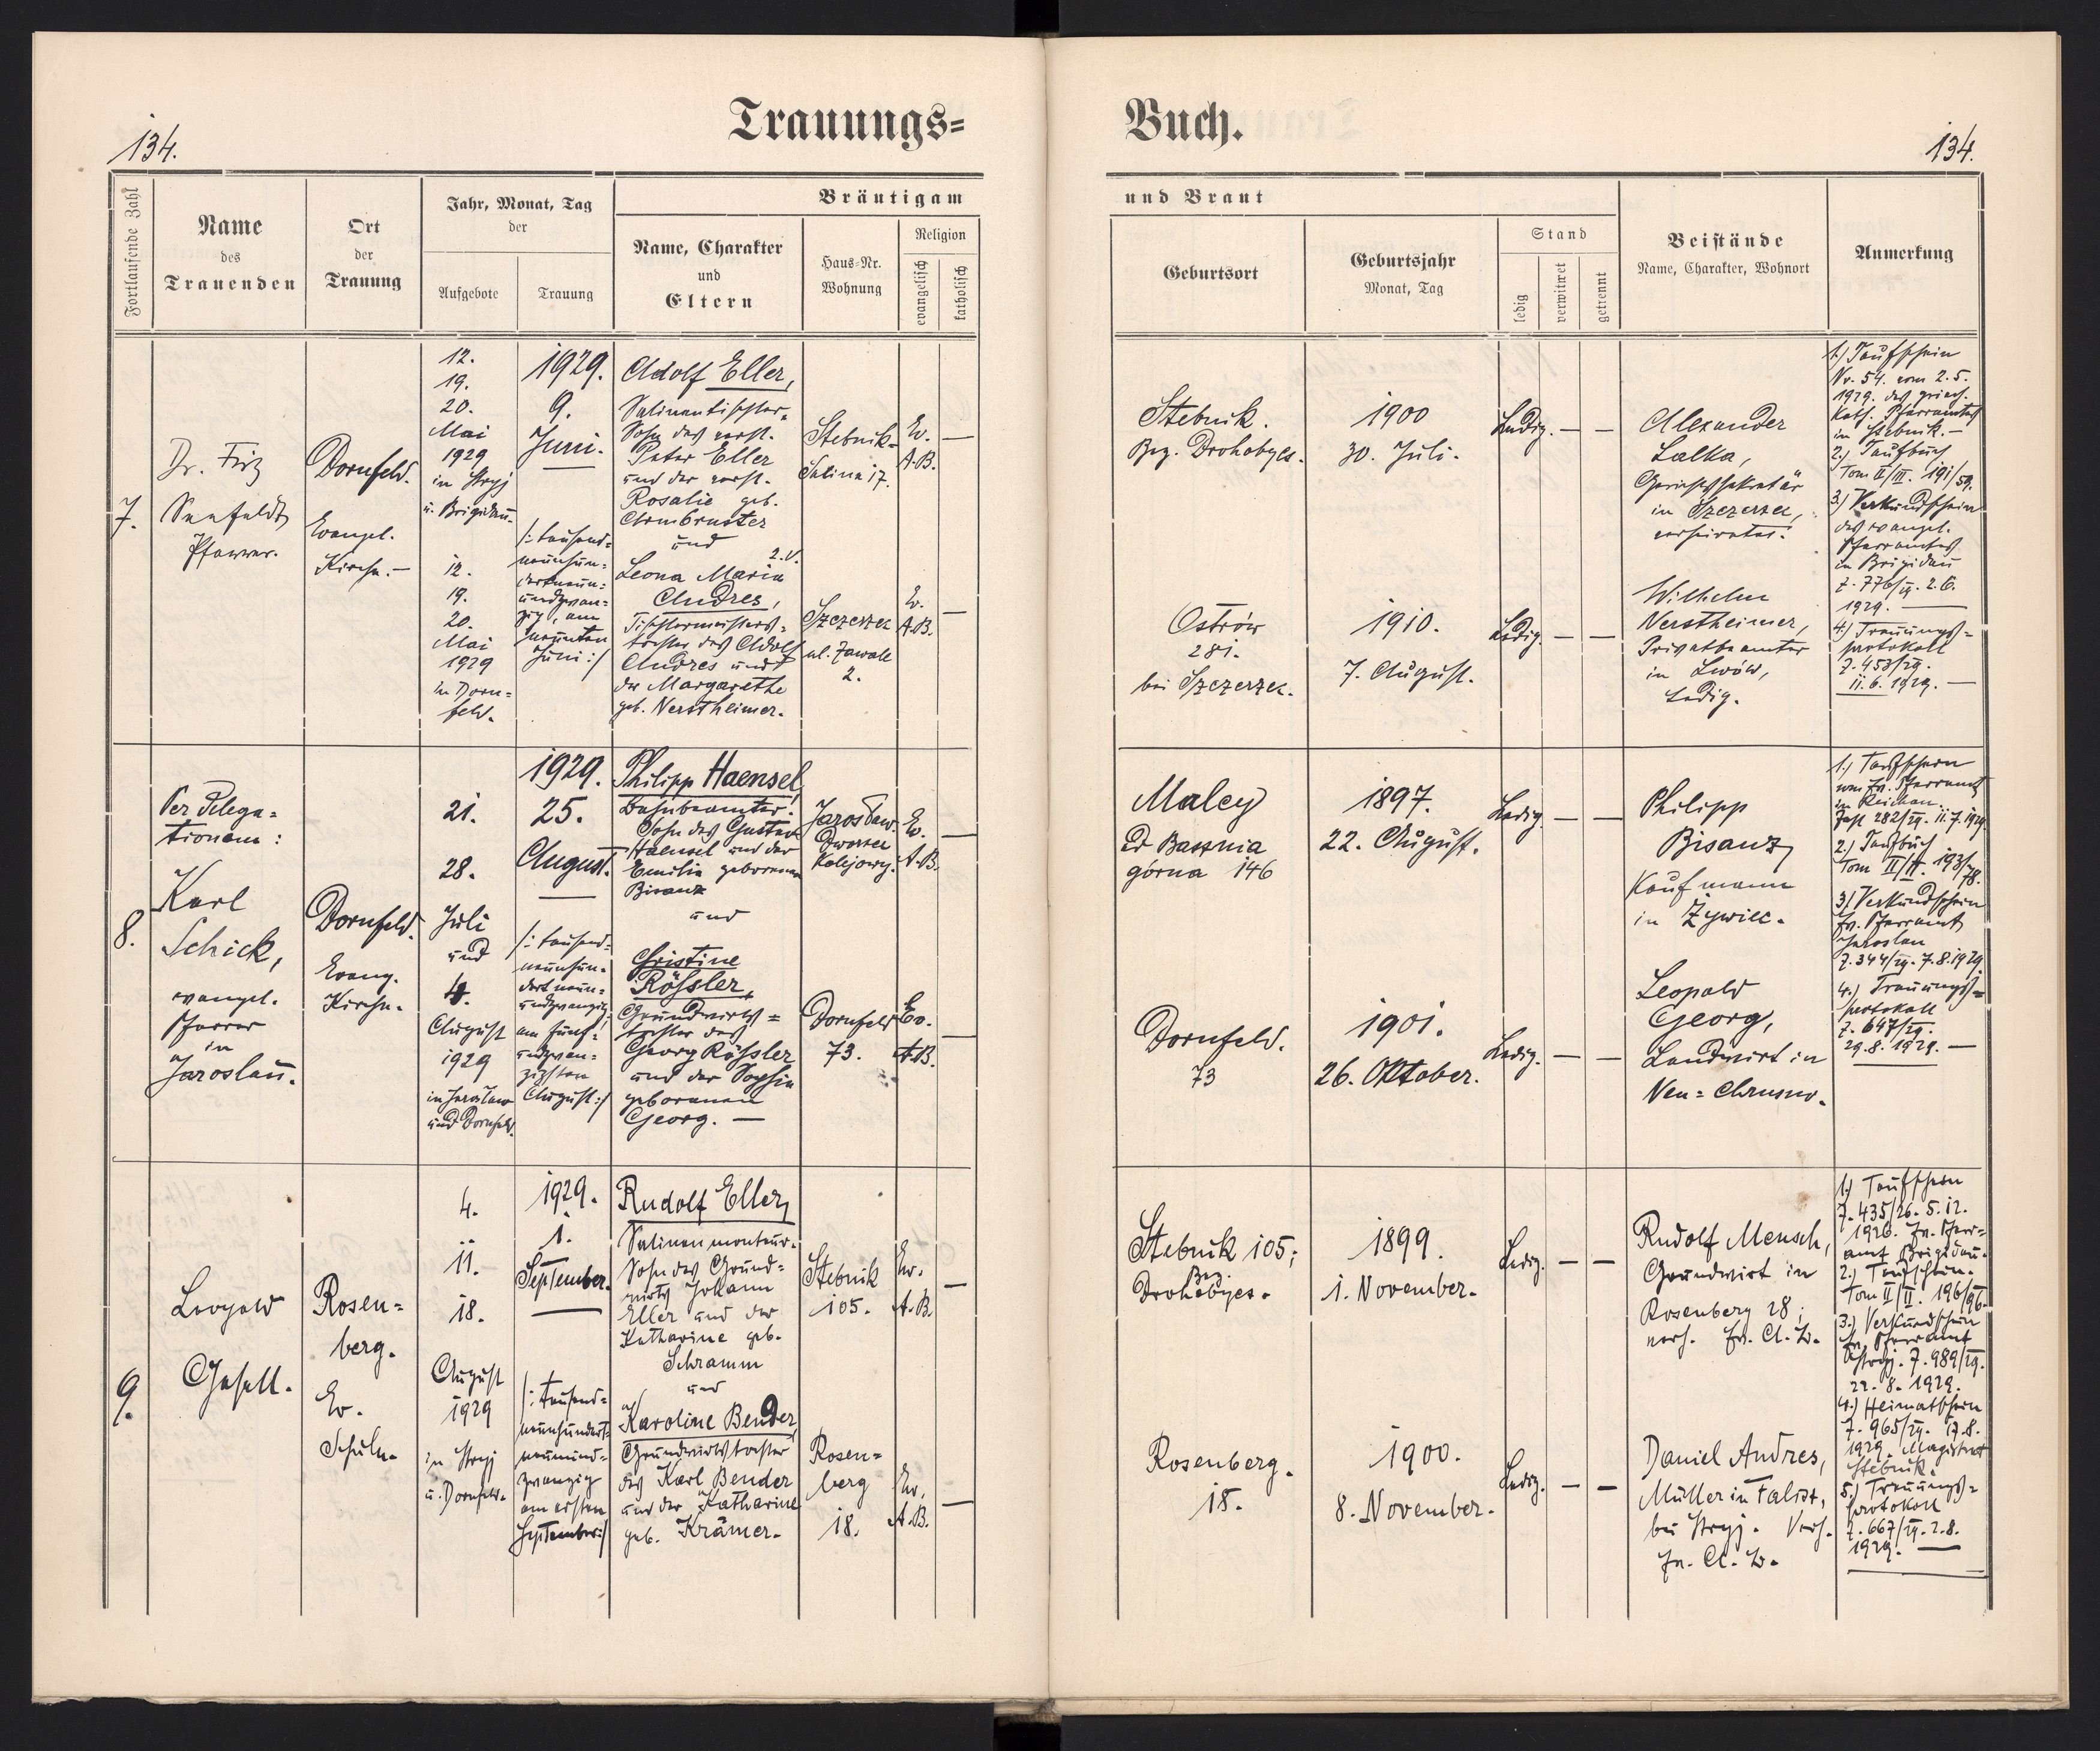 134.
Trauungs=
Fortlaufende Zahl
Name
des
Trauenden
Ort
der
Trauung
Jahr, Monat, Tag
der
Aufgebote
Trauung
Bräutigam
Name, Charakter
und
Eltern
Haus=Nr.
Wohnung
Religion
evangelisch
katholisch
7.
Dr. Fritz
Seefeldt
Pfarrer.
Dornfeld.
Evangel.
Kirche.–
12.
19.
20.
Mai
1929
in Stryj
u. Brigidau.
12.
19.
20.
Mai
1929
in Dorn=
feld.
1929.
9.
Juni.
/: tausend=
neunhun=
dertneun=
undzwan=
zig, am
neunten
Juni :/
Adolf Eller,
Salinentischler,
Sohn des verst.
Peter Eller
und der verst.
Rosalie geb.
Armbruster
und
Leona Maria
Andres,
Tischlermeisters=
tochter des Adolf
Andres und
der Margarethe
geb. Verstheimer.
Stebnik-
Salina 17.
Ev.
A.B.
—
Szczerzec
ul. Zawale
2.
Ev.
A.B.
—
8.
Per Delega=
tionem:
Karl
Schick,
evangel.
Pfarrer
in
Jaroslau.
Dornfeld.
Evang.
Kirche.
21.
28.
Juli
und
4.
August
1929
in Jarosław
und Dornfeld.
1929.
25.
August.
/: tausend=
neunhun=
dertneun=
undzwanzig,
am fünf=
undzwan=
zigsten
August :/
Philipp Haensel,
Bahnbeamter.
Sohn des Gustav
Haensel und der
Emilie geborenen
Bisanz
und
Christine
Rößler,
Grundwirts=
tochter des
Georg Rößler
und der Sophie
geborenen
Georg. —
Jarosław.
Dworzec
Kolejowy.
Ev.
A.B.
—
Dornfeld
73.
Ev.
A.B.
—
9.
Leopold
Gesell.
Rosen=
berg.
Ev.
Schule.
4.
11.
18.
August
1929
in Stryj
u. Dornfeld.
1929.
1.
September.
/: tausend=
neunhundert=
neunund=
zwanzig
am ersten
September :/
Rudolf Eller,
Salinenmonteur.
Sohn des Grund=
wirts Johann
Eller und der
Katharine geb.
Schramm
und
Karoline Bender,
Grundwirtstochter
des Karl Bender
und der Katharine
geb. Krämer.
Stebnik
105.
Ev.
A.B.
—
Rosen=
berg
18.
Ev.
A.B.
—
Buch.
134.
und Braut
Geburtsort
Geburtsjahr
Monat, Tag
Stand
ledig
verwitwet
getrennt
Beistände
Name, Charakter, Wohnort
Anmerkung
Stebnik.
Bez. Drohobycz.
1900
30. Juli.
Ledig. — —
Alexander
Lalka,
Gerichtssekretär
in Szczerzec,
verheiratet.
Ostrów
281.
bei Szczerzec.
1910.
7. August.
Ledig. — —
Wilhelm
Verstheimer,
Privatbeamter
in Lwów,
Ledig.
1.) Taufschein
Nr. 54. vom 2. 5.
1929. des griech.
kath. Pfarramtes
in Stebnik.–
2.) Taufbuch
Tom II/III. 191/59.
3.) Verkündschein
des evangel.
Pfarramtes
in Brigidau
Z. 776/29. 2. 6.
1929. —
4.) Trauungs=
protokoll
Z. 453/29.
11. 6. 1929. —
Malcy
ad Basznia
górna 146
1897.
22. August.
Ledig. — —
Philipp
Bisanz
Kaufmann
in Żywiec.
Dornfeld.
73
1901.
26. Oktober.
Ledig. — —
Leopold
Georg,
Landwirt in
Neu=Chrusno.
1.) Taufschein
vom Ev. Pfarramt
in Reichau.
Zahl 282/29. 11. 7. 1929.
2.) Taufbuch
Tom II/II. 193/78.
3.) Verkündschein
Ev. Pfarramt
Jaroslau
Z. 344/29. 7. 8. 1929.
4.) Trauungs=
protokoll
Z. 647/29.
29. 8. 1929. —
Stebnik 105;
Bez.
Drohobycz.
1899.
1. November.
Ledig. — —
Rudolf Mensch,
Grundwirt in
Rosenberg 28;
verh. Ev. A. B.
Rosenberg.
18.
1900.
8. November.
Ledig. — —
Daniel Andres,
Müller in Falisz,
bei Stryj. Verh.
Ev. A. B.
1.) Taufschein
Z. 435/26. 5. 12.
1926. Ev. Pfarr=
amt Brigidau.
2.) Taufschein.
Tom II/II. 196/96.
3.) Verkündschein
Ev. Pfarramt
Stryj. Z. 989/29.
22. 8. 1929.
4.) Heimatschein
Z. 965/29. 17. 8.
1929. Magistrat
Stebnik.
5.) Trauungs=
protokoll
Z. 667/29. 2. 8.
1929. —